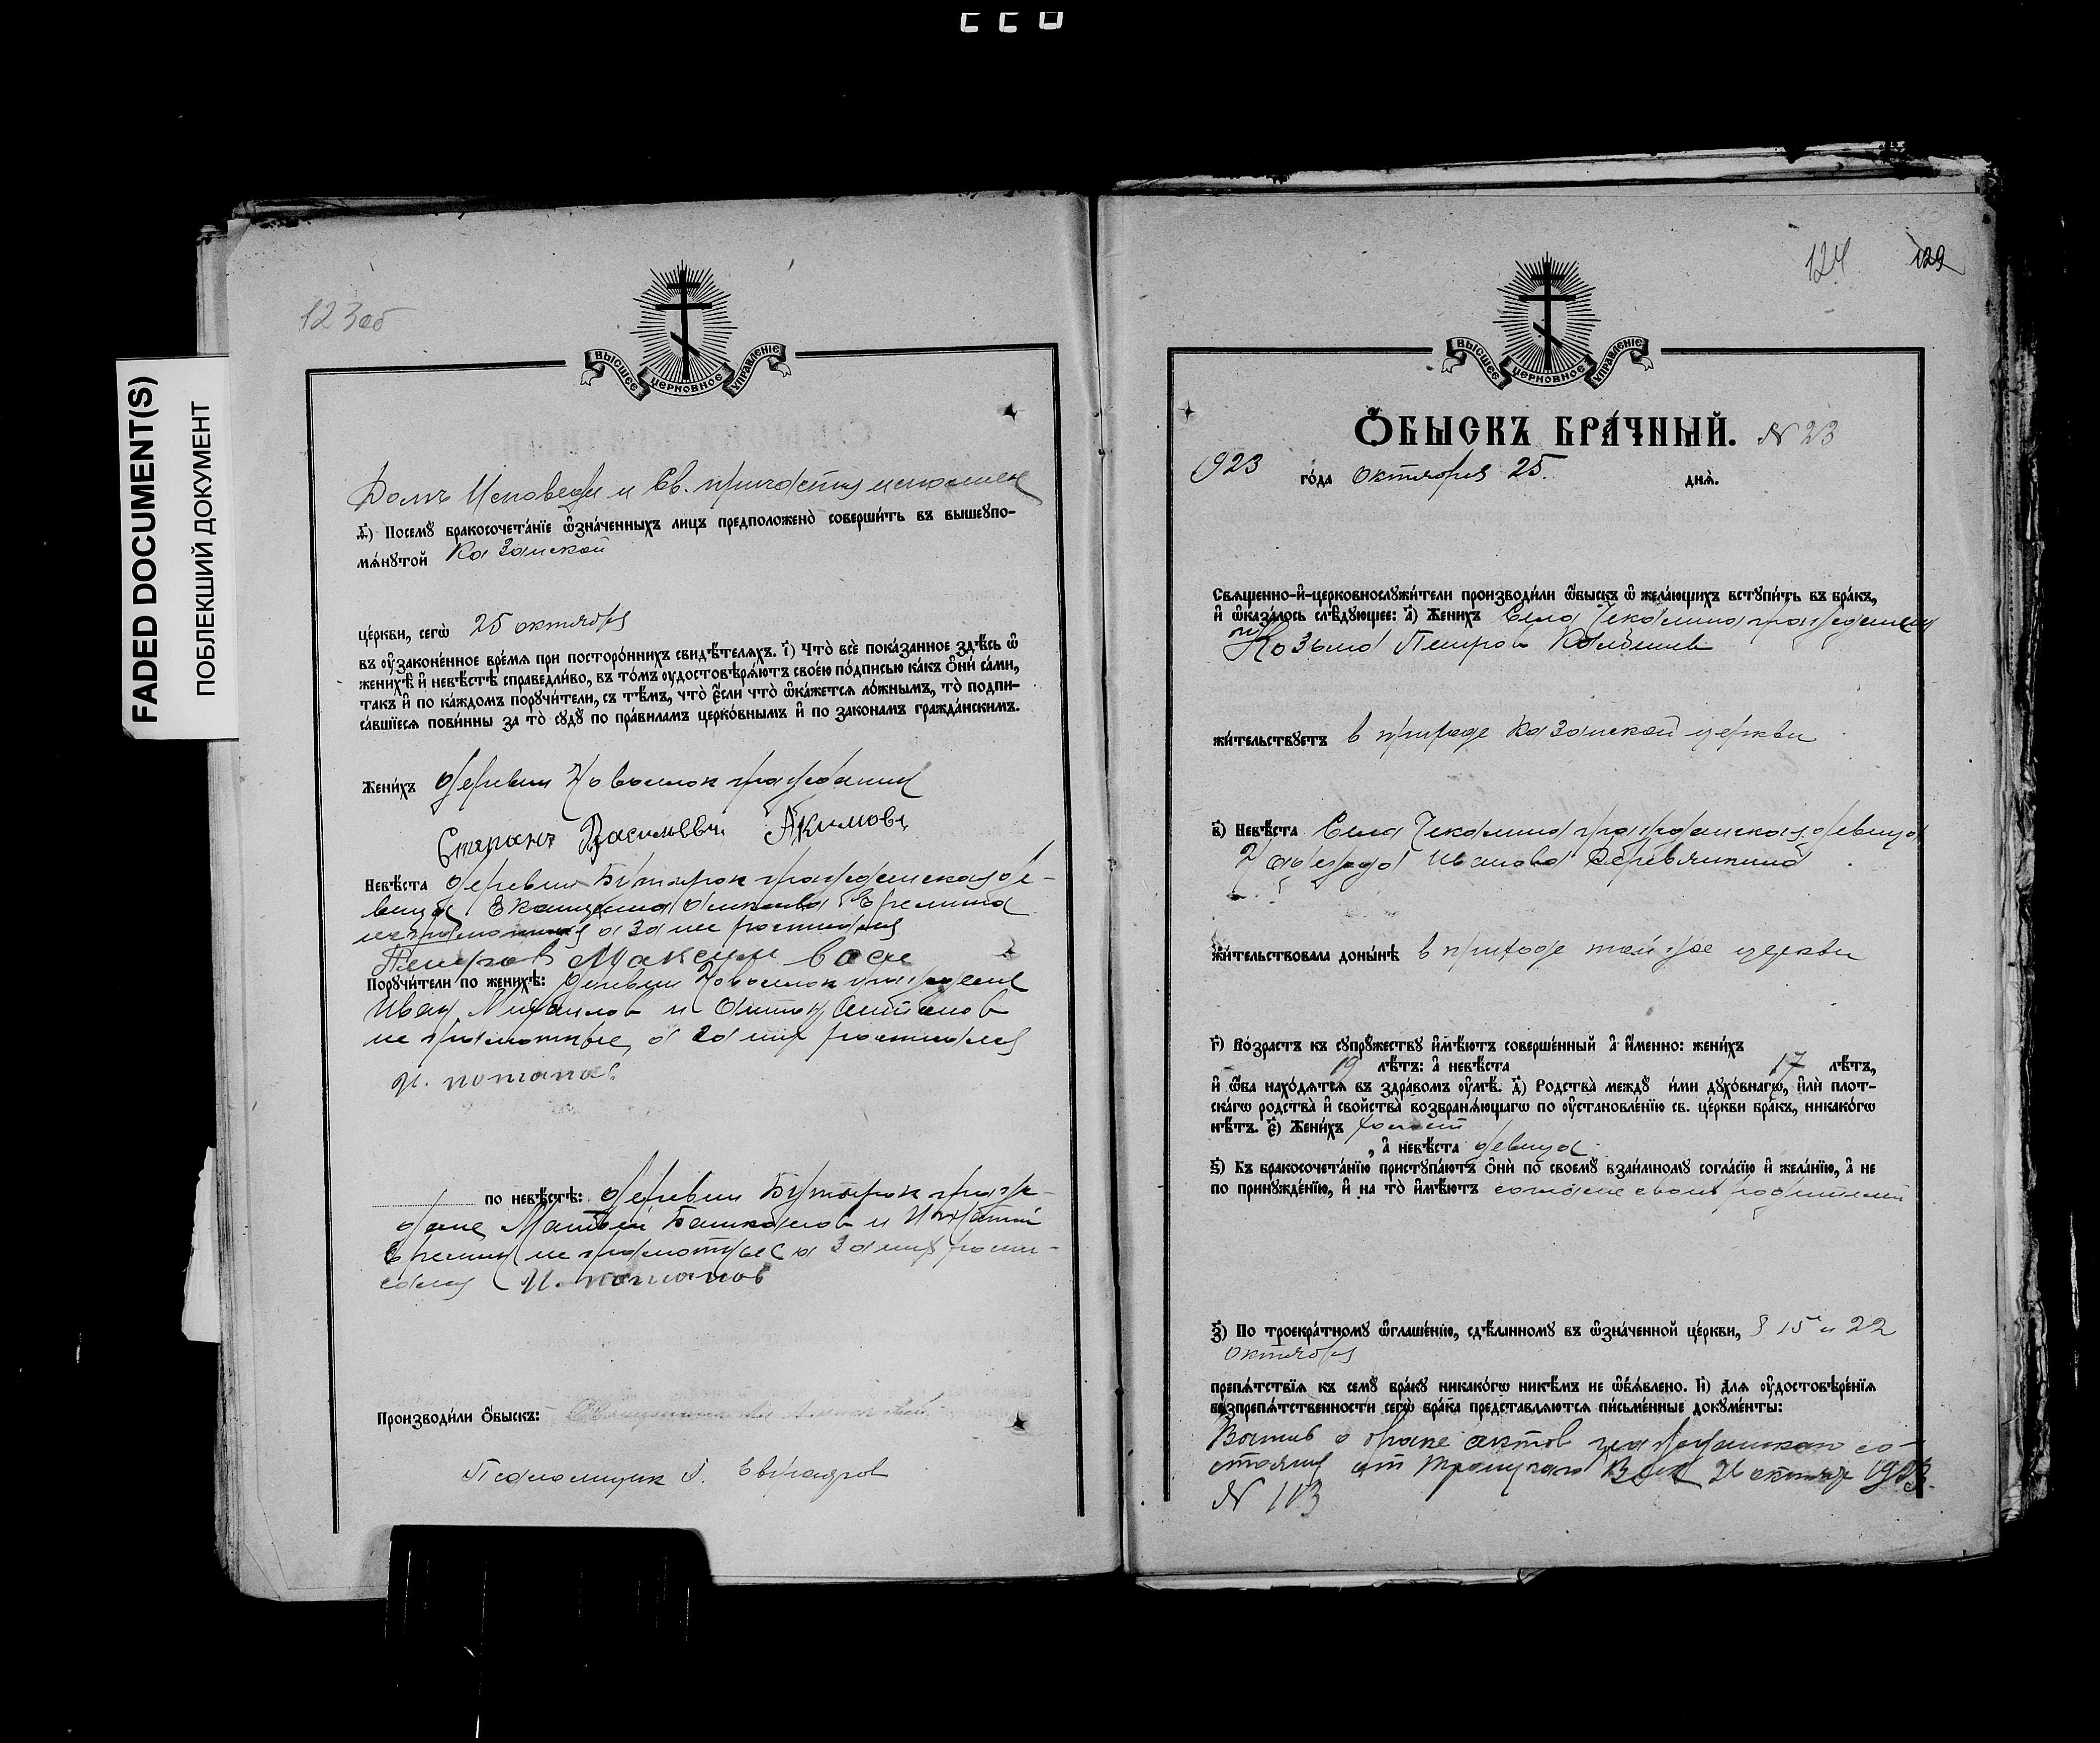 FADED DOCUMENT(S)
ПОБЛЕКШИЙ ДОКУМЕНТ
123об
ВЫСШЕЕ ЦЕРКОВНОЕ УПРАВЛЕНІЕ
Долгъ Исповеди и Св. причастия исполнен
д҃) Посемꙋ̀ бракосочета́нїе ѡ҆зна́ченныхъ лицъ предположенѡ̀ соверши́ть въ вышеꙋпо-
мѧ́нꙋтой Казанской
це́ркви, сегѡ̀ 25 октября
въ ᲂу҆зако́ненное вре́мѧ при посторо́ннихъ свидѣ́телѧхъ. і҃) Что̀ всѐ пока́занное здѣ́сь ѡ҆
женихѣ̀ и҆ невѣ́стѣ справедли́во, въ то́мъ ᲂу҆достовѣрѧ́ютъ свое́ю по́дписью ка́къ ѻ҆нѝ са́ми,
та́къ и҆ по ка́ждомъ порꙋчи́тели, съ тѣ́мъ, что̀ є҆́сли что̀ ѡ҆ка́жетсѧ ло́жнымъ, то̀ подпи-
са́вшїесѧ пови́нны за то̀ сꙋдꙋ̀ по пра́виламъ церко́внымъ и҆ по зако́намъ гражда́нскимъ.
Жени́хъ деревни Новоселок гражданин
Степанъ Васильевъ Акимовъ
Невѣ́ста деревни Бутырок гражданская де-
вица Екатерина Еремина
неграмотная а за нее росписался
Петров Максим
Порꙋчи́тели по женихѣ̀: деревни Новоселок граждане
Иван Михаилов и Антон Антонов
не грамотные, а за них росписался
И. потапов
по невѣ́стѣ: деревни Бутырок граж-
дане Матвей Башкалов и Игнатий
Еремин не грамотные а за них роспи-
сался И. потапов
Производи́ли ѻ҆́быскъ: Священник
Псаломщик
124 129
ВЫСШЕЕ ЦЕРКОВНОЕ УПРАВЛЕНІЕ
Ѻ҆́БЫСКЪ БРА́ЧНЫЙ. N 23
1923 го́да Октября 25. днѧ̀.
Свѧще́нно-и҆-церковнослꙋжи́тели производи́ли ѡ҆́быскъ ѡ҆ жела́ющихъ встꙋпи́ть въ бра́къ,
и҆ ѡ҆каза́лось слѣ́дꙋющее: а҃) Жени́хъ Села Чекалина гражданин
Козьма Петров
жи́тельствꙋетъ в приходе Казанской церкви
в҃) Невѣ́ста Села Чекалина гражданская девица
Надежда Иванова Деревянкина
жи́тельствовала доны́нѣ в приходе той же церкви
г҃) Во́зрастъ къ сꙋпрꙋ́жествꙋ и҆мѣ́ютъ соверше́нный а҆ и҆́менно: жени́хъ
19 лѣ́тъ: а҆ невѣ́ста 17 лѣ́тъ,
и҆ ѡ҆́ба нахо́дѧтсѧ въ здра́вомъ ᲂу҆мѣ̀. д҃) Родства̀ междꙋ̀ и́ми дꙋхо́внагѡ, и҆лѝ плот-
ска́гѡ родства̀ и҆ свойства̀ возбранѧ́ющагѡ по ᲂу҆становле́нїю св. це́ркви бра́къ, никако́гѡ
нѣ́тъ. є҃) Жени́хъ холост
, а҆ невѣ́ста девица
ѕ҃) Къ бракосочета́нїю пристꙋпа́ютъ ѻ҆нѝ по своемꙋ̀ взаи́мномꙋ согла́сїю и҆ жела́нїю, а҆ не
по принꙋжде́нїю, и҆ на то̀ и҆мѣ́ютъ согласие своих родителей
з҃) По троекра́тномꙋ ѡ҆глаше́нїю, сдѣ́ланномꙋ въ ѡ҆зна́ченной це́ркви, 8 15 и 22
Октября
препѧ́тствїѧ къ семꙋ̀ бра́кꙋ никако́гѡ никѣ́мъ не ѡ҆бъѧ́влено. и҃) Длѧ ᲂу҆достовѣре́нїѧ
безпрепѧ́тственности сегѡ̀ бра́ка представлѧ́ютсѧ пи́сьменные докꙋме́нты:
о браке актов гражданскаго со-
стояния от Троицкаго октября 1923.
N 113